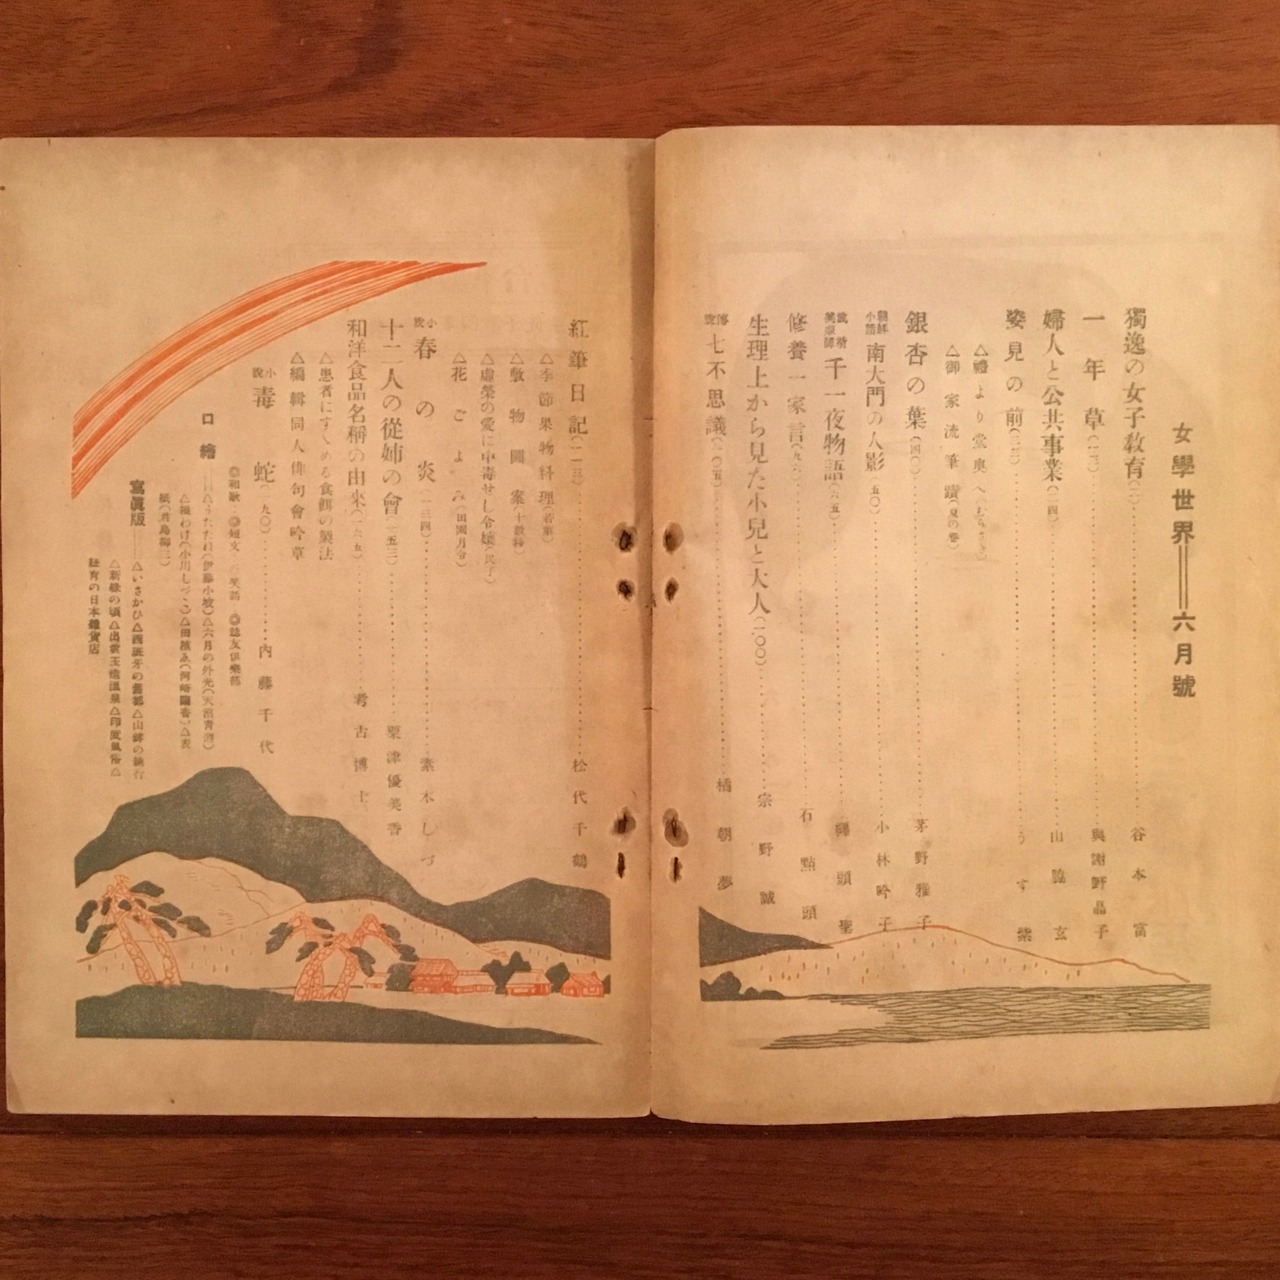 女學世界＝六月號
獨逸の女子教育(二)……谷本富
一年草(一二)……與謝野晶子
婦人と公共事業(一四)……山脇玄
姿見の前……うす紫
△禮より堂奥へ
△御家流筆蹟
銀杏の葉(四〇)……茅野雅子
朝鮮小話 南大門の人影(五〇)……小林吟子
千一夜物語(六五)
修養一家言……石黙頭
生理上から見た小兒と大人(一〇〇)……宗野誠
傳說 七不思議(一〇五)……橘朝夢
紅筆日記(一一三)……松代千鶴
△季節果物料理
△敷物圖案(十數種)
△虛榮の愛に中毒せし令孃
△花ごよみ(田園月令)
小說 春の炎(一三四)……素木しづ
十二人の從姉の會(一五三)……粟津優美香
和洋食品名稱の由來(一六五)……考古博士
△患者にすゝめる食餌の製法
△編輯同人俳句會吟草
小說 毒蛇(一九〇)……內藤千代
◎和歌・◎短文・◎笑話・◎誌友俱樂部
口繪——△うたたね(伊藤小坡)△六月の外光
△田植ゑ(河崎蘭香)△表
寫眞版——△いさかひ△西班牙の舊都
△新綠の頃△出雲玉造溫泉△印度風俗△
の日本雜貨店